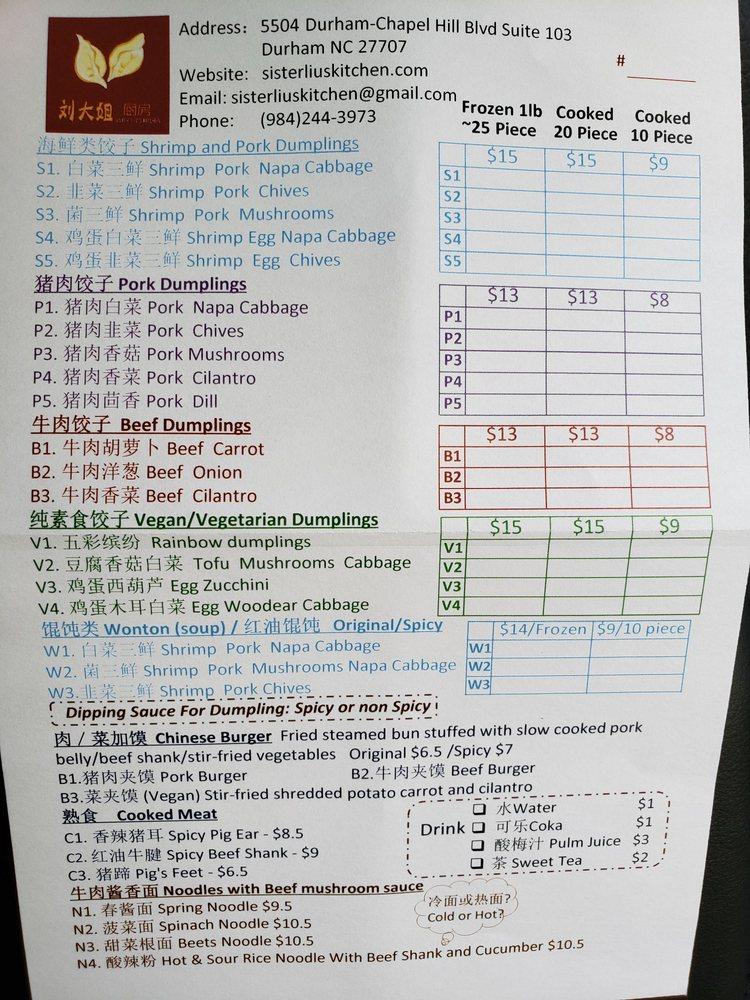 刘大姐 厨房
Address: 5504 Durham-Chapel Hill Blvd Suite 103
Durham NC 27707
#
Website: sisterliuskitchen.com
Email: sisterliuskitchen@gmail.com
Phone: (984)244-3973
Frozen 1lb Cooked Cooked
~25 Piece 20 Piece 10 Piece
海鲜类饺子 Shrimp and Pork Dumplings
$15 $15 $9
S1. 白菜三鲜 Shrimp Pork Napa Cabbage S1
S2. 韭菜三鲜 Shrimp Pork Chives S2
S3. 菌三鲜 Shrimp Pork Mushrooms S3
S4. 鸡蛋白菜三鲜 Shrimp Egg Napa Cabbage S4
S5. 鸡蛋韭菜三鲜 Shrimp Egg Chives S5
猪肉饺子 Pork Dumplings $13 $13 $8
P1. 猪肉白菜 Pork Napa Cabbage P1
P2. 猪肉韭菜 Pork Chives P2
P3. 猪肉香菇 Pork Mushrooms P3
P4. 猪肉香菜 Pork Cilantro P4
P5. 猪肉茴香 Pork Dill P5
牛肉饺子 Beef Dumplings $13 $13 $8
B1. 牛肉胡萝卜 Beef Carrot B1
B2. 牛肉洋葱 Beef Onion B2
B3. 牛肉香菜 Beef Cilantro B3
纯素食饺子 Vegan/Vegetarian Dumplings $15 $15 $9
V1. 五彩缤纷 Rainbow dumplings V1
V2. 豆腐香菇白菜 Tofu Mushrooms Cabbage V2
V3. 鸡蛋西葫芦 Egg Zucchini V3
V4. 鸡蛋木耳白菜 Egg Woodear Cabbage V4
馄饨类 Wonton (soup) / 红油馄饨 Original/Spicy $14/Frozen $9/10 piece
W1. 白菜三鲜 Shrimp Pork Napa Cabbage W1
W2. 菌三鲜 Shrimp Pork Mushrooms Napa Cabbage W2
W3.韭菜三鲜 Shrimp Pork Chives W3
Dipping Sauce For Dumpling: Spicy or non Spicy
肉 / 菜加馍 Chinese Burger Fried steamed bun stuffed with slow cooked pork
belly/beef shank/stir-fried vegetables Original $6.5 /Spicy $7
B1.猪肉夹馍 Pork Burger B2.牛肉夹馍 Beef Burger
B3.菜夹馍 (Vegan) Stir-fried shredded potato carrot and cilantro
熟食 Cooked Meat
C1. 香辣猪耳 Spicy Pig Ear - $8.5
C2. 红油牛腱 Spicy Beef Shank - $9
C3. 猪蹄 Pig's Feet - $6.5
Drink
水Water $1
可乐Coka $1
酸梅汁 Pulm Juice $3
茶 Sweet Tea $2
牛肉酱香面 Noodles with Beef mushroom sauce
N1. 春酱面 Spring Noodle $9.5
N2. 菠菜面 Spinach Noodle $10.5
N3. 甜菜根面 Beets Noodle $10.5
N4. 酸辣粉 Hot & Sour Rice Noodle With Beef Shank and Cucumber $10.5
冷面或热面?
Cold or Hot?